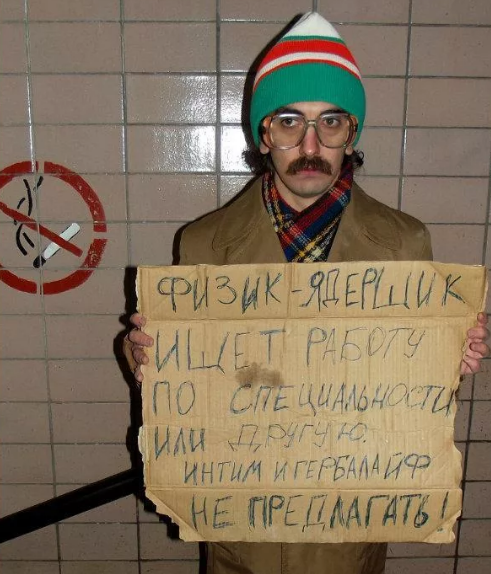 ФИЗИК-ЯДЕРЩИК
ИЩЕТ РАБОТУ
ПО СПЕЦИАЛЬНОСТИ
ИЛИ ДРУГУЮ.
ИНТИМ И ГЕРБАЛАЙФ
НЕ ПРЕДЛАГАТЬ!